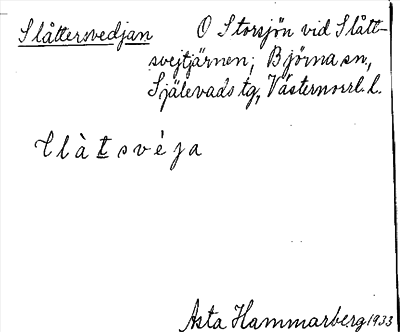 Slåttersvedjan O Storsjön vid Slått-
svejtjärnen; Björna sn,
Själevads tg, Västernorrl. l.
Asta Hammarberg 1933